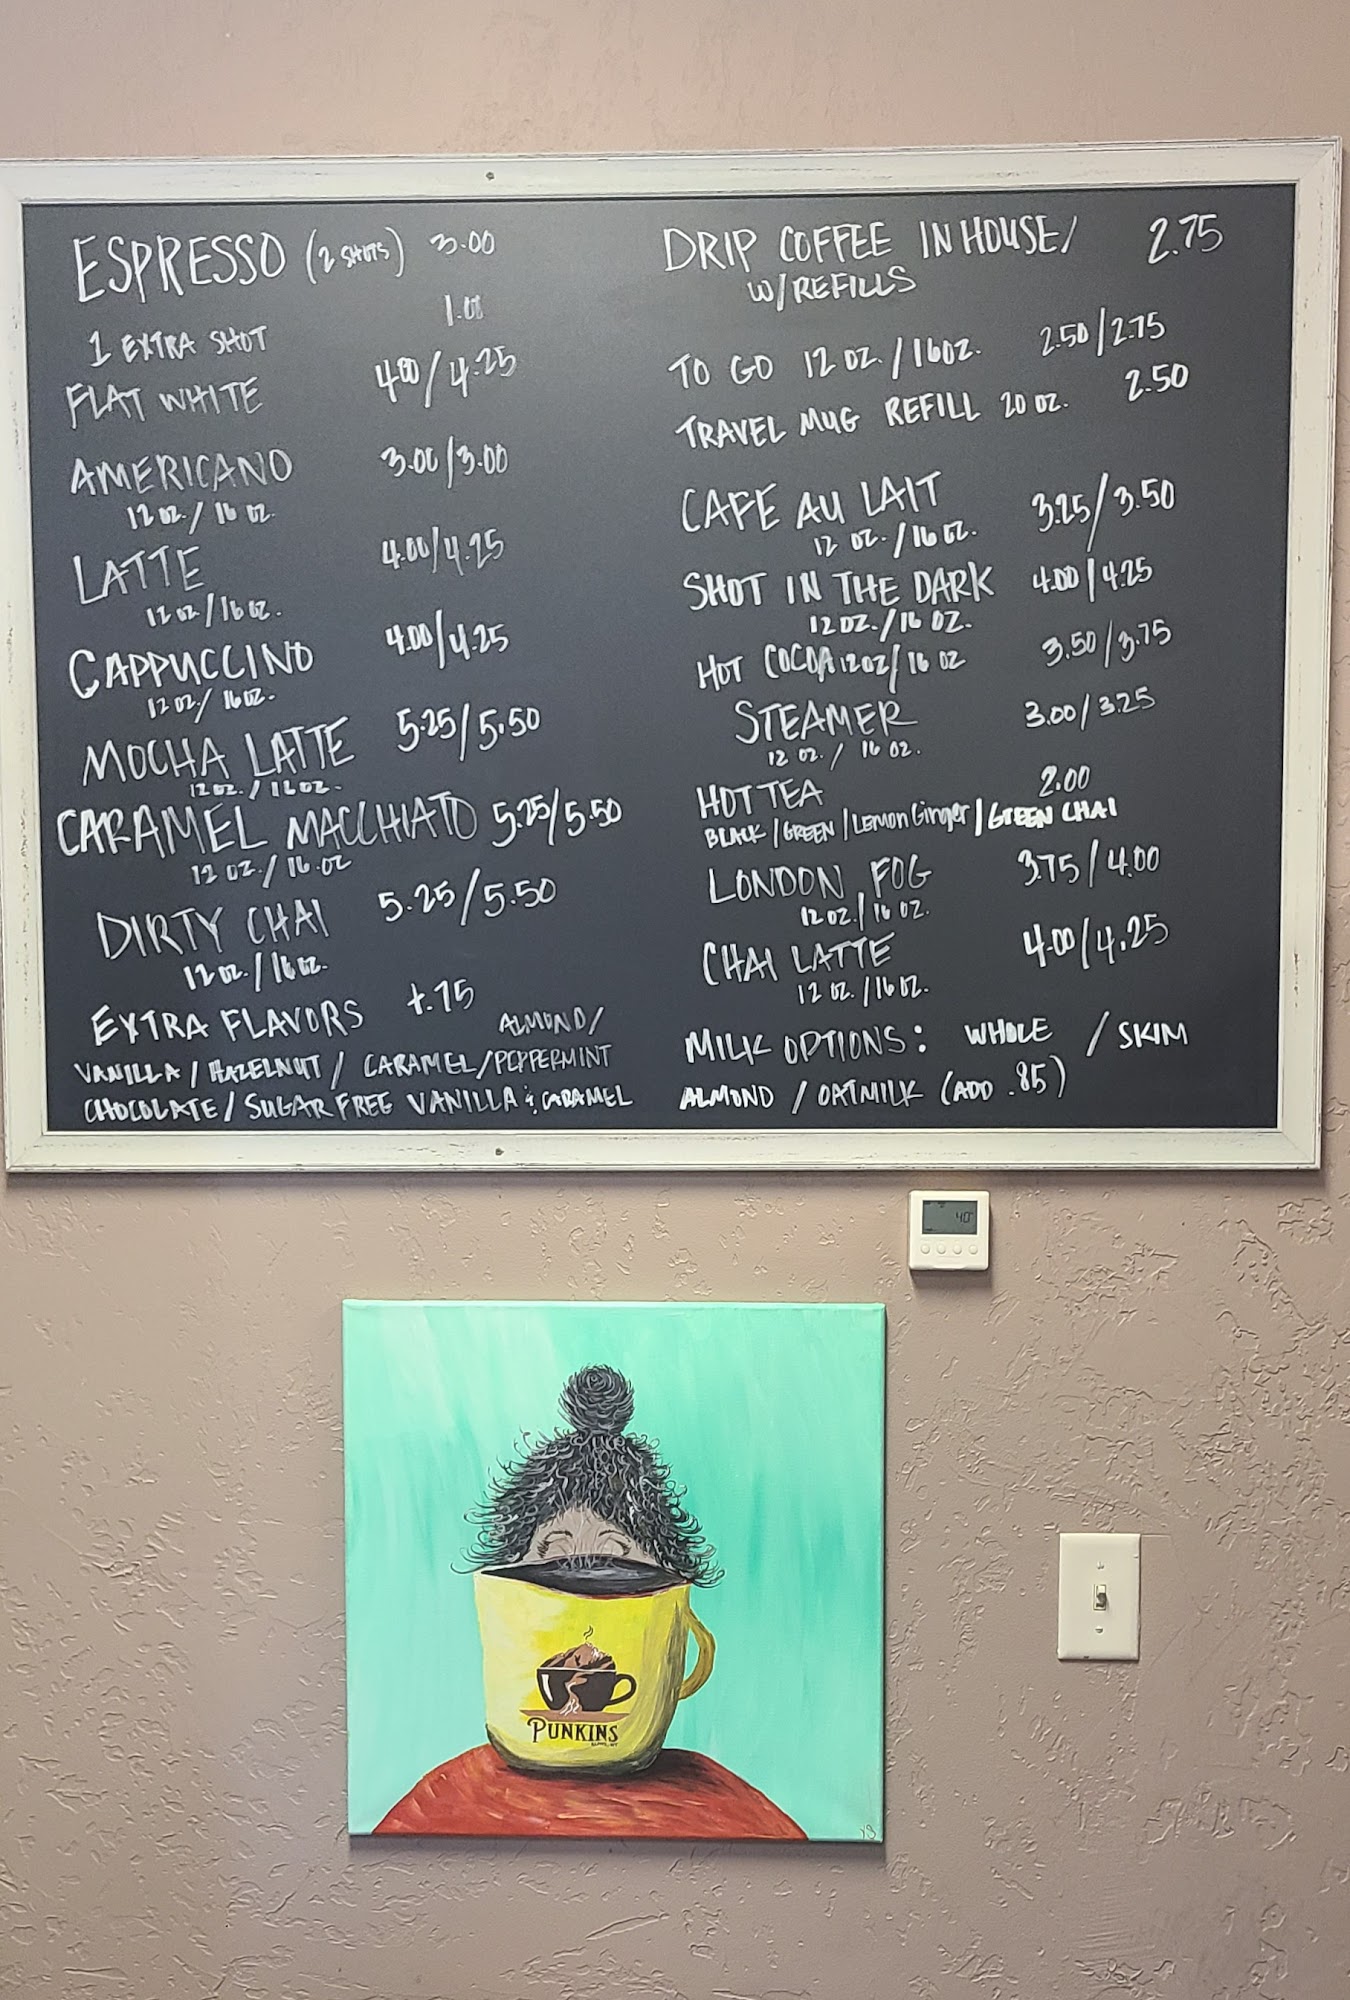 ESPRESSO (2 SHOTS) 3.00
1 EXTRA SHOT 1.00
FLAT WHITE 4.00/4.25
AMERICANO 3.00/3.00
12 oz./16 oz.
LATTE 4.00/4.25
12 oz/16 oz.
CAPPUCCINO 4.00/4.25
12 oz/16 oz.
MOCHA LATTE 5.25/5.50
12 oz./16 oz.
CARAMEL MACCHIATO 5.25/5.50
12 oz./16.oz
DIRTY CHAI 5.25/5.50
12 oz./16 oz.
EXTRA FLAVORS +.75 ALMOND/
VANILLA/HAZELNUT/CARAMEL/PEPPERMINT
CHOCOLATE/SUGAR FREE VANILLA & CARAMEL
DRIP COFFEE IN HOUSE/ 2.75
W/REFILLS
TO GO 12 oz./16oz. 2.50/2.75
TRAVEL MUG REFILL 20 oz. 2.50
CAFE AU LAIT 3.25/3.50
12 oz./16 oz.
SHOT IN THE DARK 4.00/4.25
12 oz./16 oz.
HOT COCOA 12 oz/16 oz 3.50/3.75
STEAMER 3.00/3.25
12 oz./16 oz.
HOT TEA 2.00
BLACK/GREEN/Lemon Ginger/GREEN CHAI
LONDON FOG 3.75/4.00
12 oz./16 oz.
CHAI LATTE 4.00/4.25
12 oz./16 oz.
MILK OPTIONS: WHOLE / SKIM
ALMOND / OATMILK (ADD .85)
40°
PUNKINS
YB